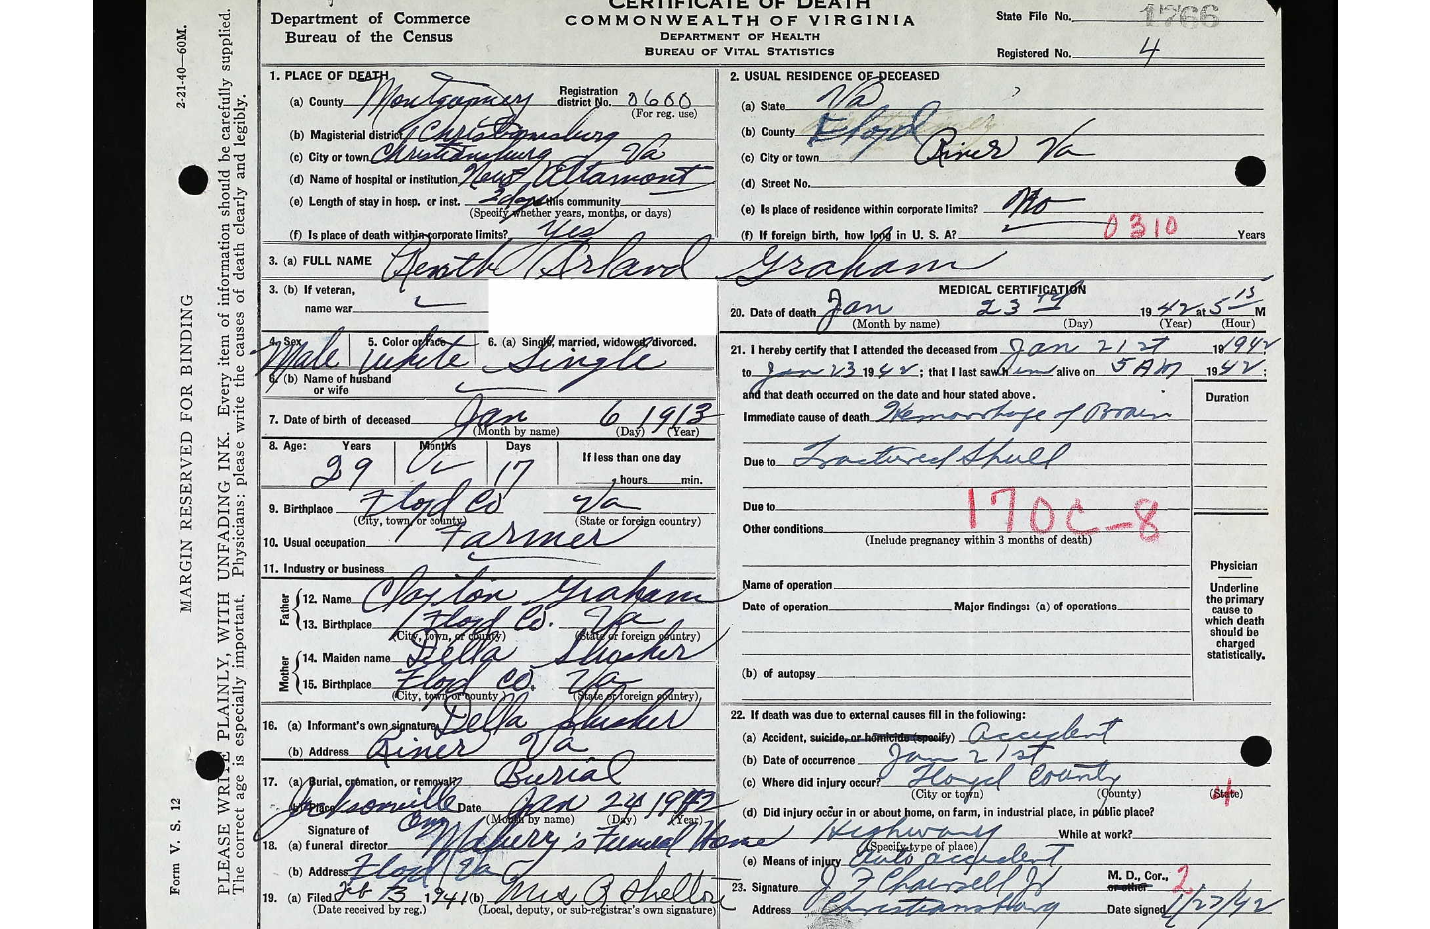 CERTIFICATE OF DEATH
Department of Commerce
Bureau of the Census
COMMONWEALTH OF VIRGINIA
DEPARTMENT OF HEALTH
BUREAU OF VITAL STATISTICS
State File No. 1766
Registered No. 4
2-21-40—60M.
MARGIN RESERVED FOR BINDING
Form V. S. 12
PLEASE WRITE PLAINLY, WITH UNFADING INK. Every item of information should be carefully supplied.
The correct age is especially important. Physicians: please write the causes of death clearly and legibly.
1. PLACE OF DEATH
(a) County Montgomery Registration district No. 0600
(For reg. use)
(b) Magisterial district Christiansburg
(c) City or town Christiansburg Va
(d) Name of hospital or institution New Altamont
(e) Length of stay in hosp. or inst. 2 days this community
(Specify whether years, months, or days)
(f) Is place of death within corporate limits? Yes
2. USUAL RESIDENCE OF DECEASED
(a) State Va
(b) County Floyd
(c) City or town Riner Va
(d) Street No.
(e) Is place of residence within corporate limits? No
0310
(f) If foreign birth, how long in U. S. A? Years
3. (a) FULL NAME Orland Graham
3. (b) If veteran, name war
4. Sex Male 5. Color or race White 6. (a) Single, married, widowed, divorced. Single
6. (b) Name of husband or wife
7. Date of birth of deceased Jan 6 1913
(Month by name) (Day) (Year)
8. Age: Years Months Days If less than one day
29 17 hours min.
9. Birthplace Floyd Co Va
(City, town, or county) (State or foreign country)
10. Usual occupation Farmer
11. Industry or business
Father
12. Name Claxton Graham
13. Birthplace Floyd Co. Va
(City, town, or county) (State or foreign country)
Mother
14. Maiden name Della Slusher
15. Birthplace Floyd Co. Va
(City, town or county) (State or foreign country)
16. (a) Informant's own signature Della Slusher
(b) Address Riner Va
17. (a) Burial, cremation, or removal? Burial
(b) Place Jacksonville Cem Date Jan 24 1942
(Month by name) (Day) (Year)
18. (a) Signature of funeral director Maberry's Funeral Home
(b) Address Floyd Va
19. (a) Filed Feb 3 1941 (b) Mrs. Shelton
(Date received by reg.) (Local, deputy, or sub-registrar's own signature)
MEDICAL CERTIFICATION
20. Date of death Jan 23 1942 at 5 15 M
(Month by name) (Day) (Year) (Hour)
21. I hereby certify that I attended the deceased from Jan 21st 1942
to Jan 23 1942; that I last saw him alive on 5 AM 1942;
and that death occurred on the date and hour stated above.
Duration
Immediate cause of death Hemorrhage of Brain
Due to Fractured Skull
Due to
170C-8
Other conditions
(Include pregnancy within 3 months of death)
Name of operation
Date of operation Major findings: (a) of operations
(b) of autopsy
Physician
Underline the primary cause to which death should be charged statistically.
22. If death was due to external causes fill in the following:
(a) Accident, suicide, or homicide (specify) Accident
(b) Date of occurrence Jan 21st
(c) Where did injury occur? Floyd County
(City or town) (County) (State)
4
(d) Did injury occur in or about home, on farm, in industrial place, in public place?
Highway While at work?
(Specify type of place)
(e) Means of injury Auto accident
23. Signature M. D., Cor., or other 2
Address Christiansburg Date signed 1/27/42